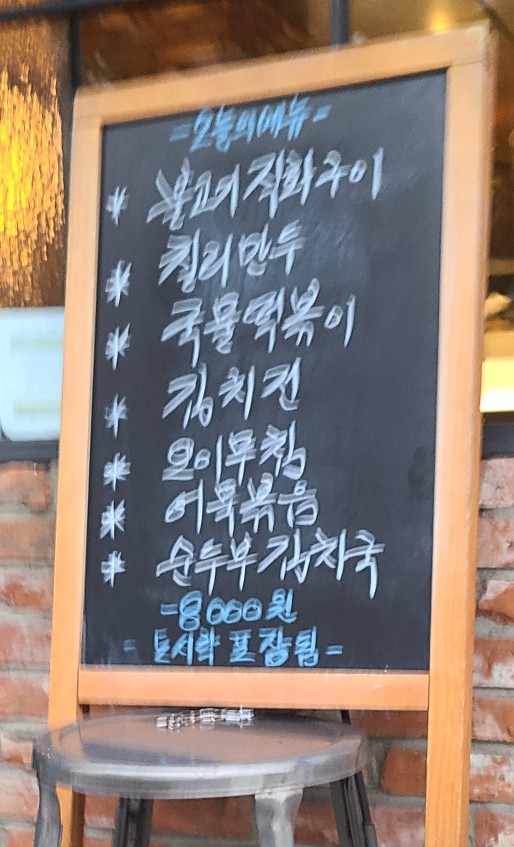 -오늘의메뉴-
* 불고기직화구이
* 칠리만두
* 국물떡볶이
* 김치전
* 오이무침
* 어묵볶음
* 순두부김치국
-8000원
- 도시락 포장됨 -